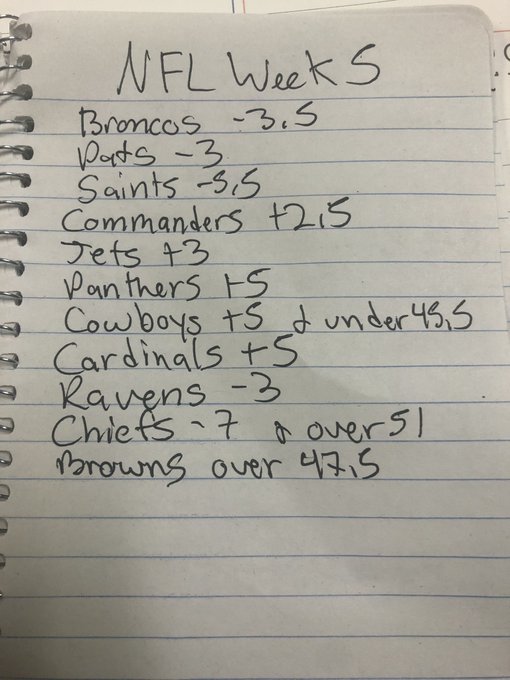 NFL Week 5
Broncos -3.5
Pats -3
Saints -5.5
Commanders +2.5
Jets +3
Panthers +5
Cowboys +5 & under 45.5
Cardinals +5
Ravens -3
Chiefs -7 & over 51
Browns over 47.5